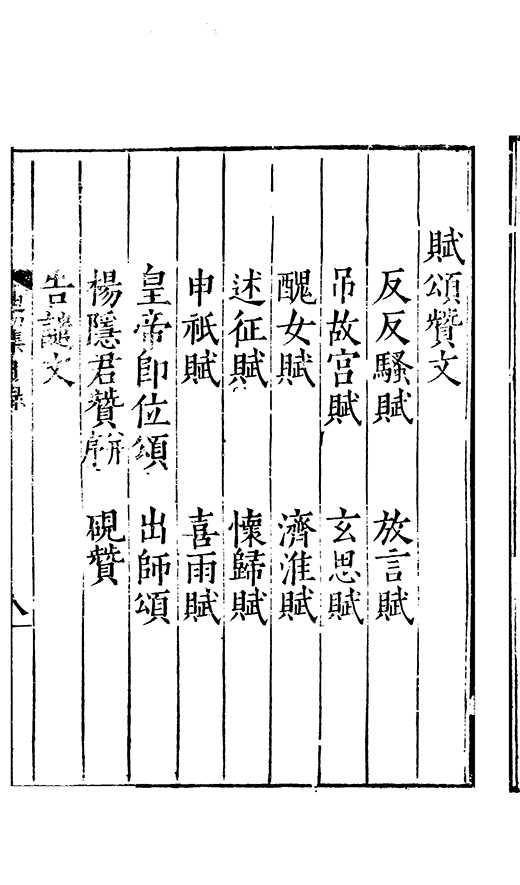 賦頌贊文
反反騷賦 放言賦
吊故宮賦 玄思賦
醜女賦 濟淮賦
述征賦 懷歸賦
申祇賦 喜雨賦
皇帝即位頌 出師頌
楊隱君贊并序 硯贊
告文
集目錄
八